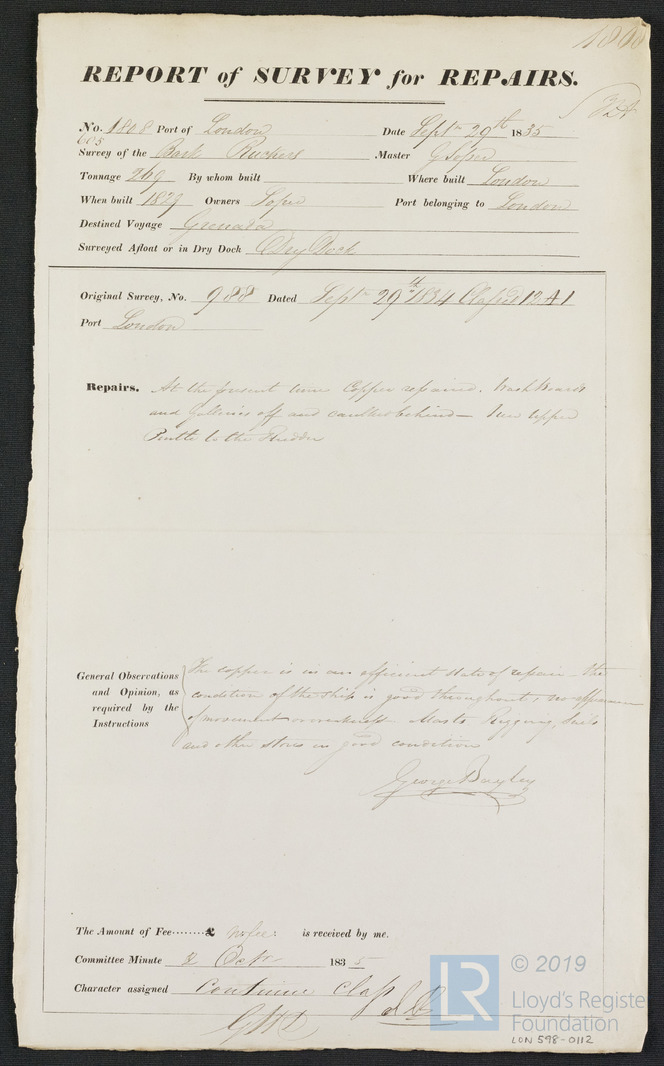 1808
REPORT of SURVEY for REPAIRS.
No. 1808 Port of London Date Septr 29th 1835
605
Survey of the Bark Ruckers Master G Soper
Tonnage 269 By whom built Where built London
When built 1829 Owners Soper Port belonging to London
Destined Voyage Grenada
Surveyed Afloat or in Dry Dock Dry Dock
Original Survey, No. 988 Dated Septr 29th 1834 Classed 12 A1
Port London
Repairs. At the present time Copper repaired. Wash Boards
and Galleries off and caulked behind — New Upper
Pintle to the Rudder
General Observations and Opinion, as required by the Instructions
The copper is in an efficient state of repair – the
condition of the ship is good throughout, no appearance
of movement or weakness Masts Rigging, Sails
and other stores in good condition
George Bayley
The Amount of Fee ........ £ No fee: is received by me.
Committee Minute 2 Octr 1835
Character assigned Continue Class
LR
© 2019
Lloyd's Registe
Foundation
LON 598-0112